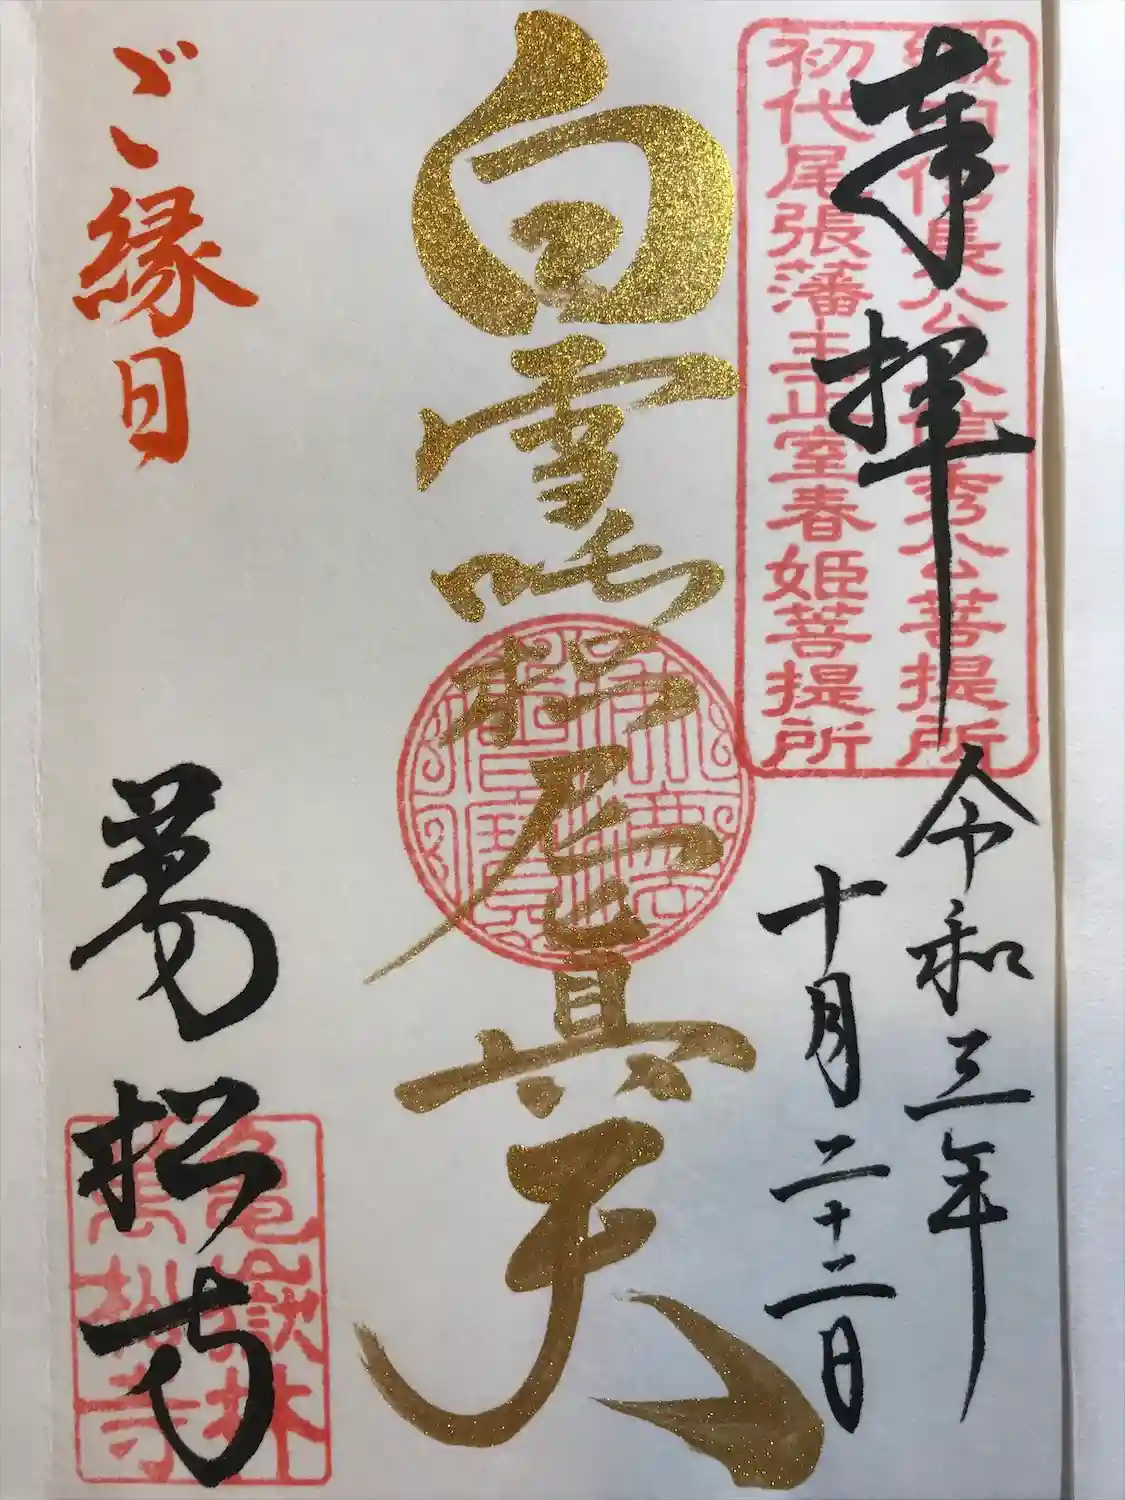 奉拝
織田信長公父信秀公菩提所
初代尾張藩主正室春姫菩提所
令和三年
十月二十二日
白雪稲荷眞天
ご縁日
萬松寺
亀嶽林
萬松寺